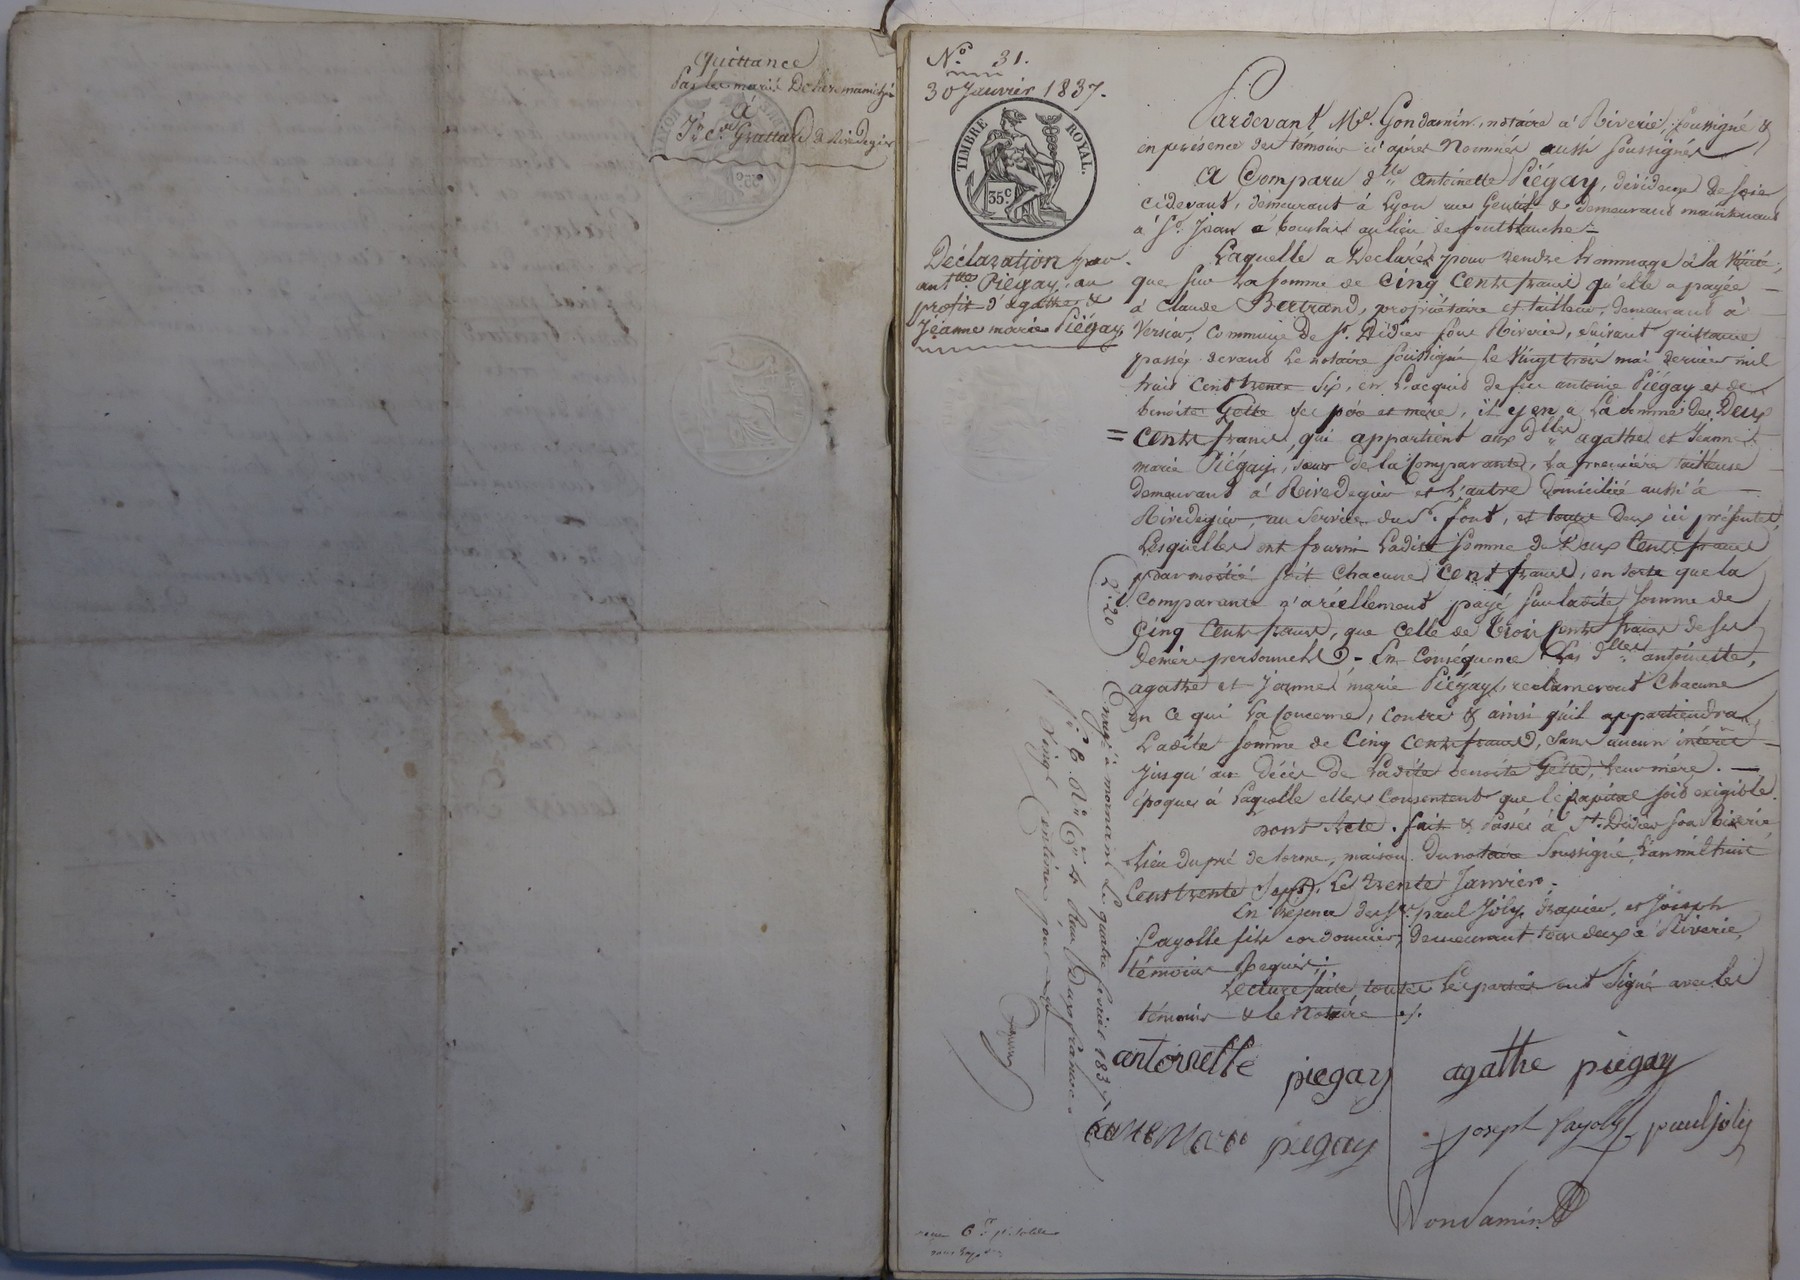 quittance
Par les mariés
à
Jn Cde Grattard de Rivedegier
No. 31.
30 Janvier 1837.
TIMBRE ROYAL.
35c.
Déclaration par
antttes Piégay, au
profit d'agathe &
Jeanne marie Piégay
Pardevant Me. Gondamin, notaire à Riverie, soussigné &
en présence des témoins ci après Nommés aussi soussignés
A Comparu dlle antoinette Piégay, dévideuse de soie
cidevant, demeurant à Lyon rue & demeurant maintenant
à St. Jean à toulas au lieu de fontblanche
Laquelle a Déclaré, pour rendre hommage à la Vérité,
que sur la somme de Cinq Cents francs qu'elle a payée
à Claude Bertrand, propriétaire et tailleur, demeurant à
Versieu, Commune de St. Didier sous Riverie, suivant quittance
passée devant le notaire soussigné le Vingt trois mai dernier mil
huit Cent trente Six, en l'acquit de feu antoine Piégay et de
benoite Gette ses père et mère, il y en a La somme des Deux
= Cents francs, qui appartient aux dlles agathe et Jeanne
marie Piégay, sœurs de la Comparante, La première tailleuse
demeurant à Rivedegier et L'autre Domiciliée aussi à
Rivedegier, au Service du Sr. font, et toutes deux ici présentes,
Lesquelles ont fourni Ladite somme de Deux Cents francs
par moitié soit Chacune Cent francs, en sorte que la
Comparante n'a réellement payé sur ladite somme de
Cinq Cents francs, que celle de trois Cents francs de ses
Deniers personnels. - En Conséquence Les dlles antoinette,
agathe et Jeanne marie Piégay, réclameront Chacune
en ce qui La Concerne, contre & ainsi qu'il appartiendra,
Ladite somme de Cinq Cents francs, Sans aucun intérêt
Jusqu'au Décès De Ladite benoite Gette, Leur mère. —
époque à Laquelle elles Consentent que le Capital soit exigible.
Dont Acte. fait & Passé à St. Didier sous Riverie
Lieu du pré de lorme, maison du notaire Soussigné, L'an mil huit
Cent trente Sept, Le trente Janvier.
En Présence des Srs. paul Joly, drapier, et Joseph
Fayolle fils cordonnier, Demeurant tous deux à Riverie,
témoins Requis.
Lecture faite toutes Les parties ont Signé avec Les
témoins & le Notaire
2f. 20
Enregé à mornant le quatre février 1837
fo. 6. Ro. Ce. 4. Reçu Deux francs
Vingt Centimes pour
antoinette piegay agathe piegay
marie piegay Joseph fayolle paul joly
Gondamin